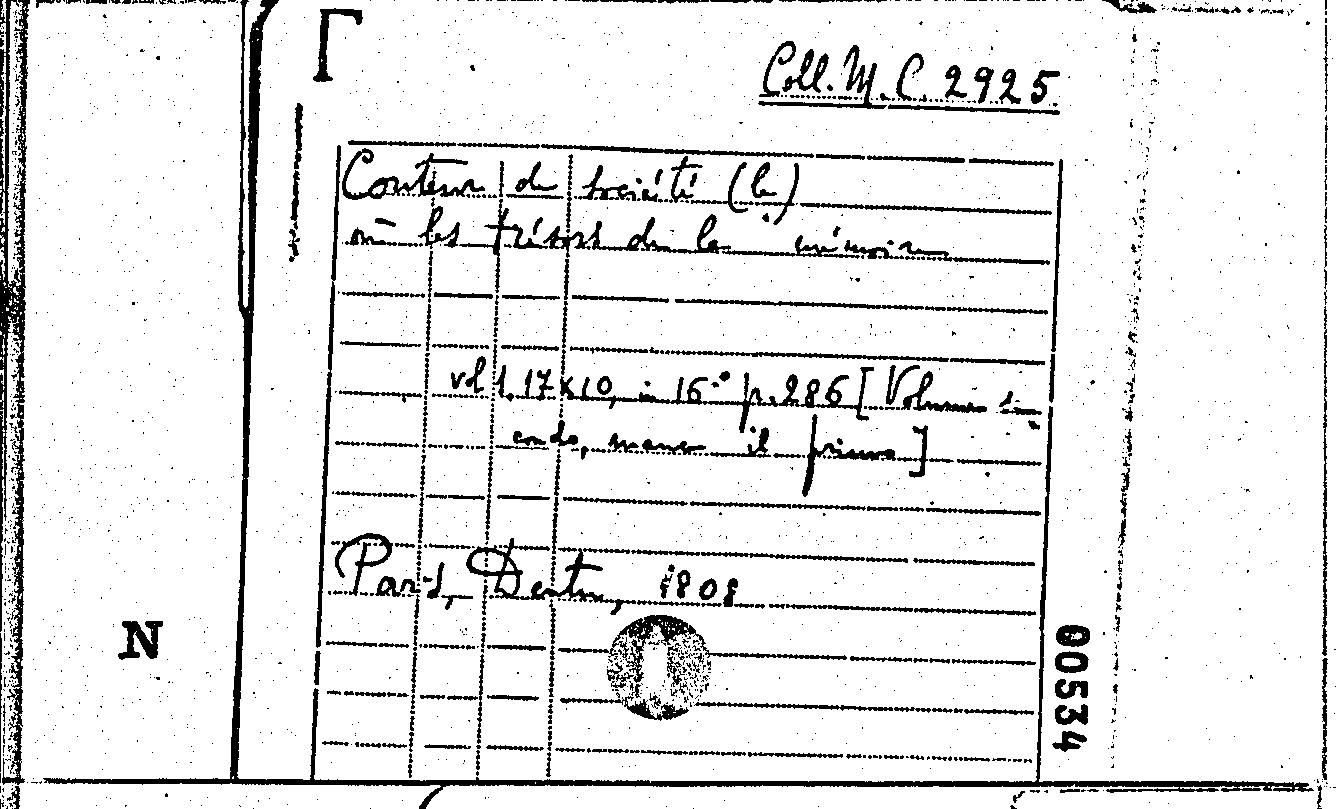 Coll. M. C. 2925
Conteur de société (le)
ou les trésors de la mémoire
vol 1. 17x10, in 16° p. 286 [Volume se-
condo, manca il primo]
Paris, Dentu, 1808
N
00534